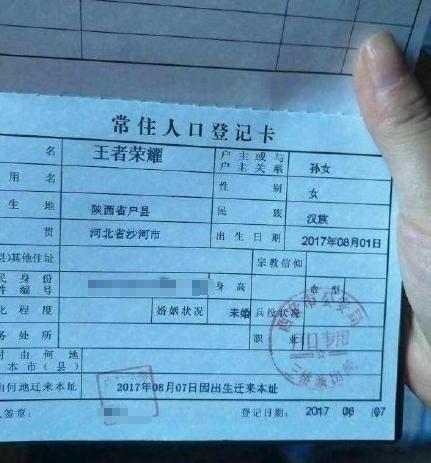 常住人口登记卡
名 王者荣耀 户主或与户主关系 孙女
用名 性别 女
生地 陕西省户县 民族 汉族
贯 河北省沙河市 出生日期 2017年08月01日
县)其他住址 宗教信仰
民身份件编号 身高 血型
化程度 婚姻状况 未婚 兵役状况
务处所 职业
时由何地本市(县)
由何地迁来本址 2017年08月07日因出生迁来本址
人签章: 登记日期: 2017 08 07